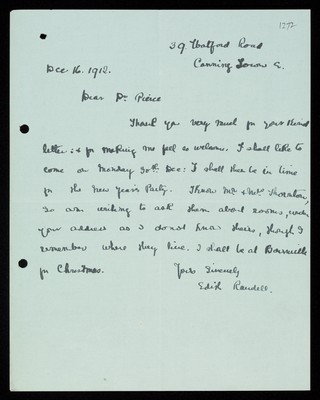 1272
39 Watford Road
Canning Town E.
Dec 16. 1912.
Dear Dr Peirce
Thank you very much for your kind
letter; & for making me feel so welcome. I shall like to
come on Monday 30th Dec: I shall then be in time
for the New Year's Party. I know Mr & Mrs Thornton,
so am writing to ask them about rooms,
your address as I do not know theirs, though I
remember where they live. I shall be at Bournville
for Christmas.
Yours Sincerely
Edith Randell.